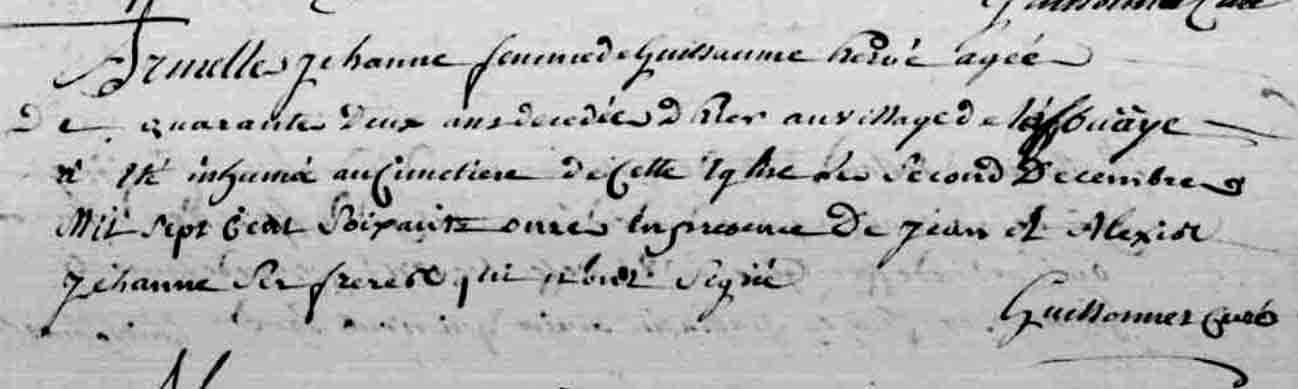 Guillonnet Curé
Armelle Jehanne femme de Guillaume hervé agée
de quarante deux ans decedée d hier au village de
a été inhumée au Cimetiere de Cette Eglise le Second Decembre
Mil Sept Cent Soixante onze En presence De jean et Alexis
Jehanne Ses freres qui n'ont Signé
Guillonnet Curé